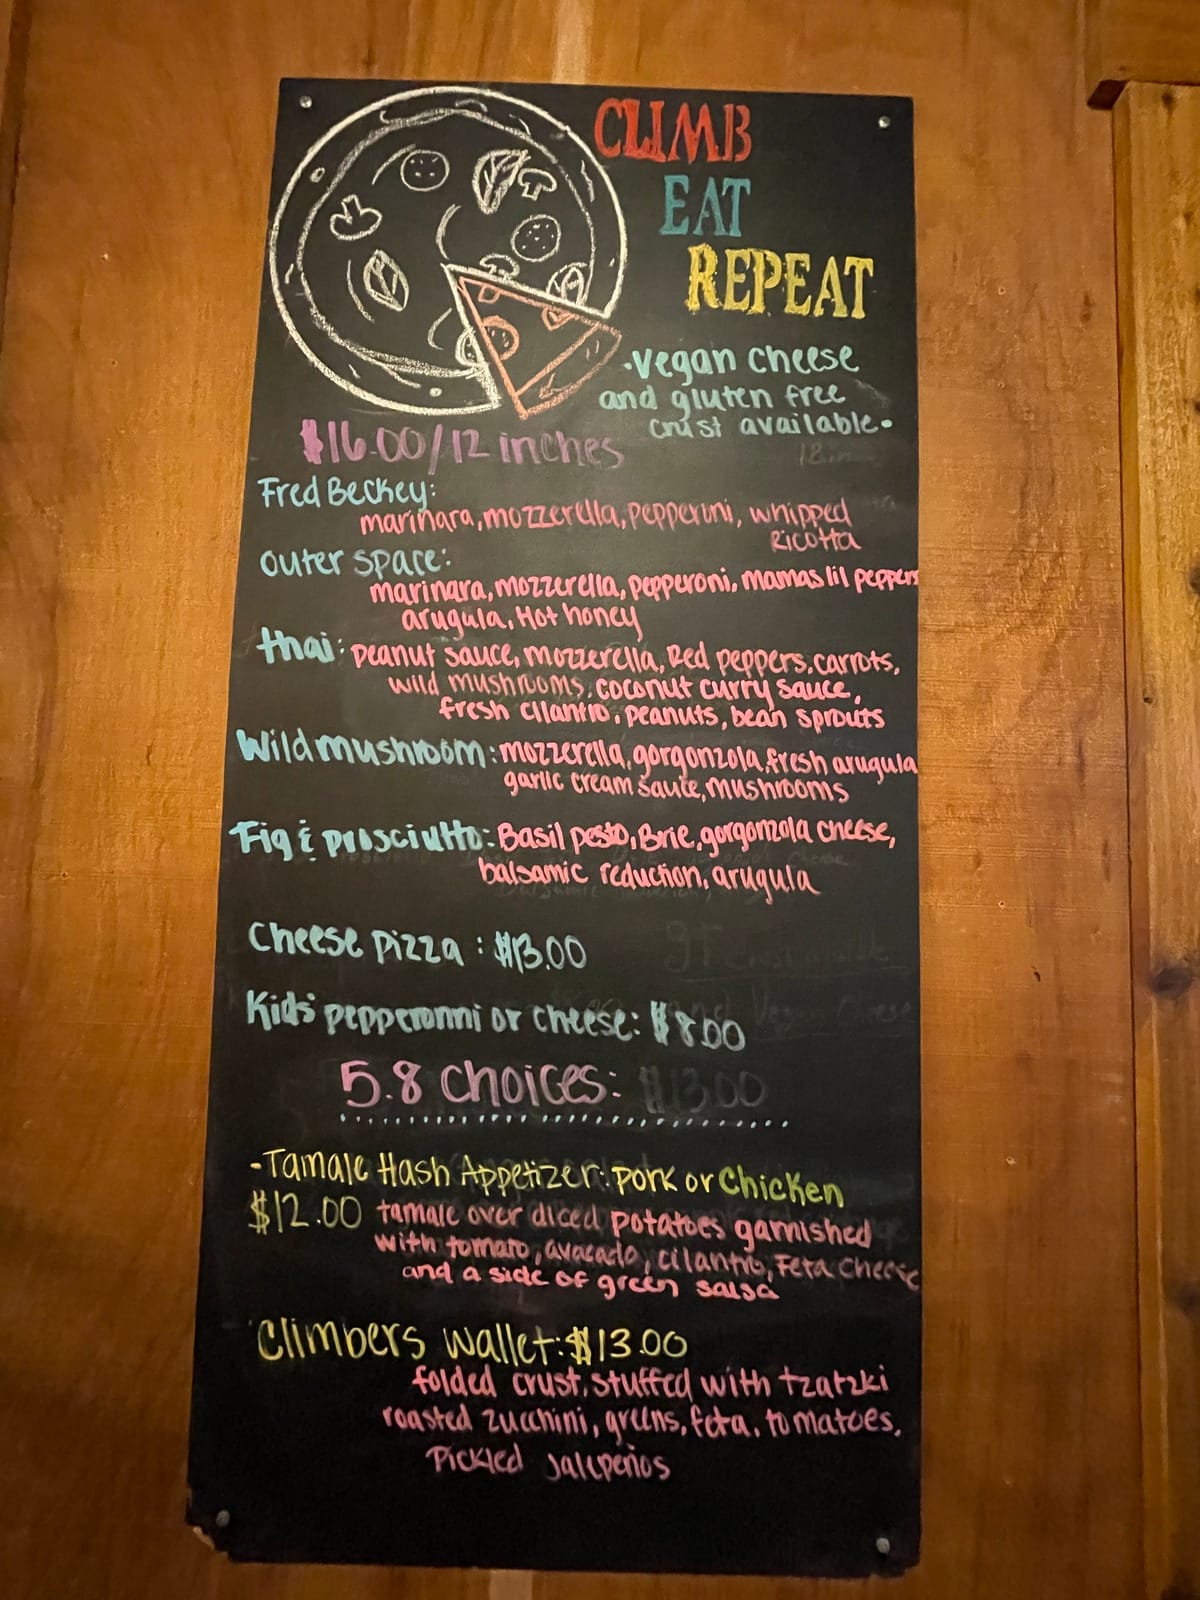 CLIMB
EAT
REPEAT
·Vegan cheese
and gluten free
crust available·
$16.00/12 inches
Fred Beckey:
marinara, mozzerella, pepperoni, whipped
Ricotta
outer space:
marinara, mozzerella, pepperoni, mamas lil peppers
arugula, Hot honey
thai: peanut sauce, mozzerella, Red peppers, carrots,
wild mushrooms, coconut curry sauce,
fresh cilantro, peanuts, bean sprouts
Wild mushroom: mozzerella, gorgonzola, fresh arugula
garlic cream sauce, mushrooms
Fig & prosciutto: Basil pesto, Brie, gorgonzola cheese,
balsamic reduction, arugula
Cheese pizza: $13.00
Kids' pepperonni or cheese: $8.00
5.8 choices: $13.00
-Tamale Hash Appetizer: pork or Chicken
$12.00 tamale over diced potatoes garnished
with tomato, avacado, cilantro, Feta cheese
and a side of green salsa
Climbers wallet: $13.00
folded crust, stuffed with tzatzki
roasted zucchini, greens, feta, tomatoes,
Pickled jalepeños